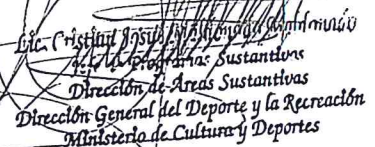 Lic. Cristian Josué
Programas Sustantivas
Dirección de Areas Sustantivas
Dirección General del Deporte y la Recreación
Ministerio de Cultura y Deportes